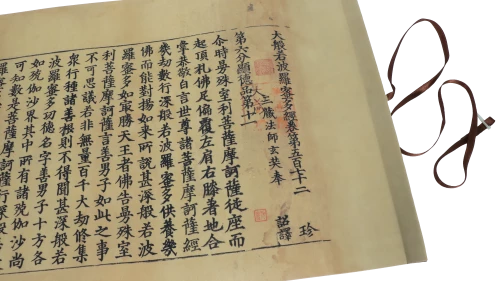 大般若波羅蜜多經卷第五百七十二
三藏法師玄奘奉 詔譯
珍
第六分顯德品第十一
尒時曼殊室利菩薩摩訶薩從座而
起頂礼佛足偏覆左肩右膝著地合
掌恭敬白言世尊諸菩薩摩訶薩經
幾劫數行深般若波羅蜜多供養幾
佛而能對揚如來所說甚深般若波
羅蜜多如最勝天王者佛告曼殊室
利菩薩摩訶薩言善男子如此之事
不可思議若非無量百千大劫修集
衆行種諸善根則不得聞甚深般若
波羅蜜多功德名字善男子十方各
如殑伽沙界其中所有諸殑伽沙尚
可知數是菩薩摩訶薩行深般
羅蜜